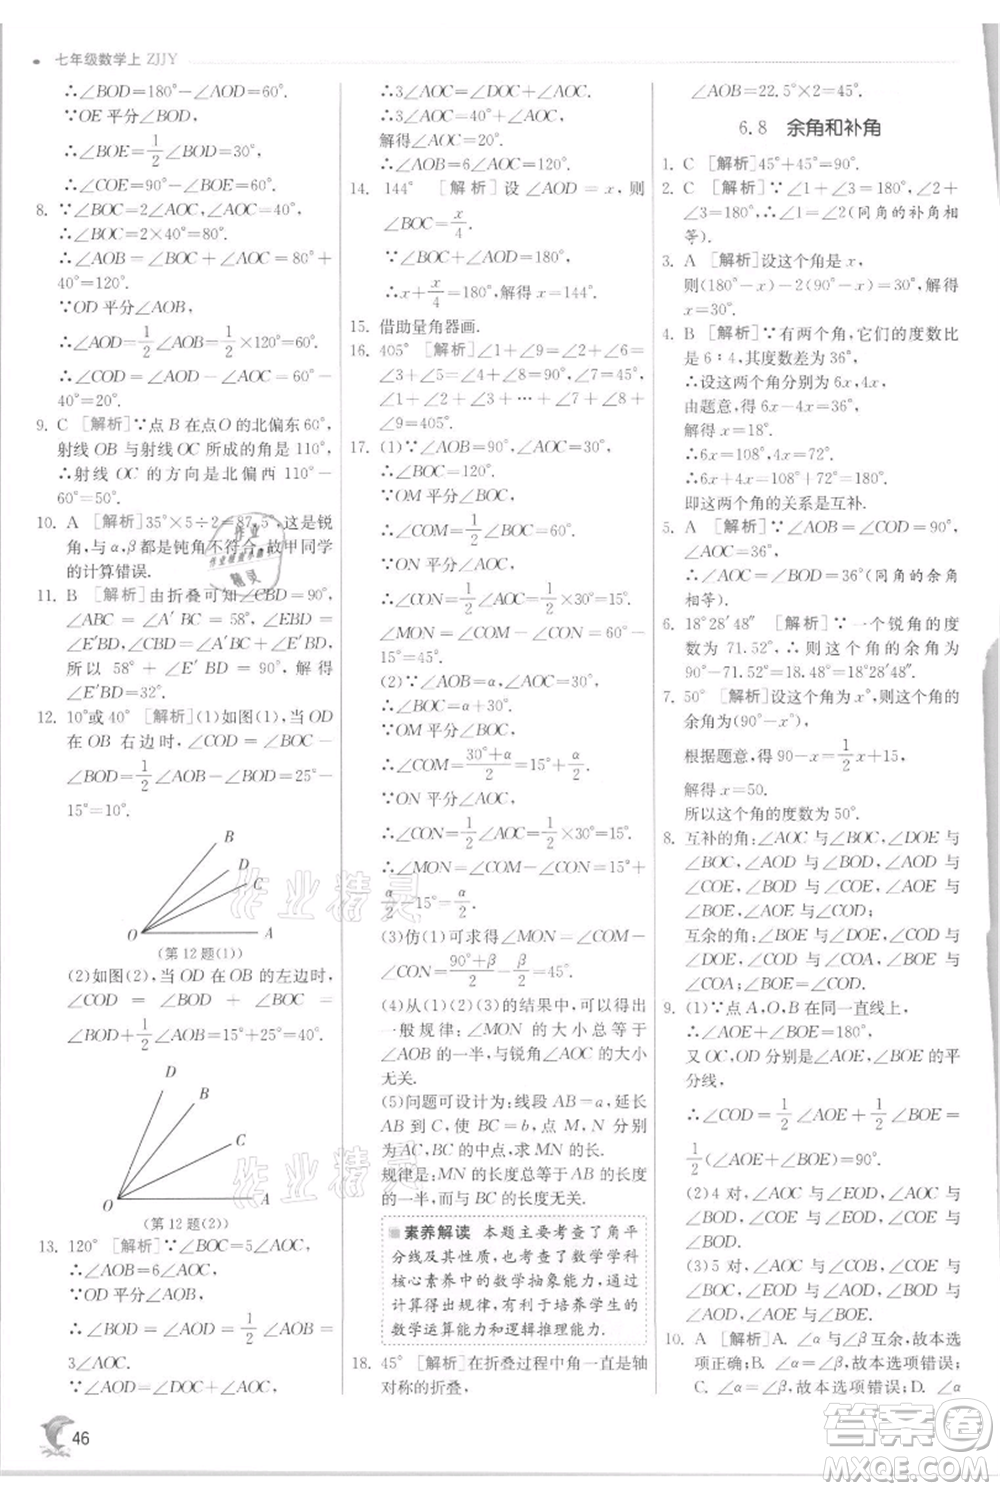 七年级数学上 ZJJY
∴∠BOD=180°-∠AOD=60°.
∵OE 平分∠BOD,
∴∠BOE=1/2∠BOD=30°,
∴∠COE=90°-∠BOE=60°.
8. ∵∠BOC=2∠AOC,∠AOC=40°,
∴∠BOC=2×40°=80°.
∴∠AOB=∠BOC+∠AOC=80°+
40°=120°.
∵OD 平分∠AOB,
∴∠AOD=1/2∠AOB=1/2×120°=60°.
∴∠COD=∠AOD-∠AOC=60°-
40°=20°.
9. C [解析]∵点 B 在点O 的北偏东60°,
射线 OB 与射线 OC 所成的角是 110°,
∴射线 OC 的方向是北偏西 110°-
60°=50°.
10. A [解析]35°×5÷2=87.5°,这是锐
角,与 α,β 都是钝角不符合,故甲同学
的计算错误.
11. B [解析]由折叠可知∠CBD=90°,
∠ABC=∠A′BC=58°,∠EBD=
∠E′BD,∠CBD=∠A′BC+∠E′BD,
所以 58°+∠E′BD=90°,解得
∠E′BD=32°.
12. 10°或 40° [解析](1)如图(1),当 OD
在OB 右边时,∠COD=∠BOC-
∠BOD=1/2∠AOB-∠BOD=25°-
15°=10°.
B
D
C
O
A
(第 12 题(1))
(2)如图(2),当 OD 在 OB 的左边时,
∠COD=∠BOD+∠BOC=
∠BOD+1/2∠AOB=15°+25°=40°.
D
B
C
O
A
(第 12 题(2))
13. 120° [解析]∵∠BOC=5∠AOC,
∴∠AOB=6∠AOC.
∵OD 平分∠AOB,
∴∠BOD=∠AOD=1/2∠AOB=
3∠AOC.
∵∠AOD=∠DOC+∠AOC,
∴3∠AOC=∠DOC+∠AOC.
∴3∠AOC=40°+∠AOC,
解得∠AOC=20°.
∴∠AOB=6∠AOC=120°.
14. 144° [解析]设∠AOD=x,则
∠BOC=x/4.
∵∠AOD+∠BOC=180°,
∴x+x/4=180°,解得 x=144°.
15. 借助量角器画.
16. 405° [解析]∠1+∠9=∠2+∠8=
∠3+∠7=∠4+∠6=90°,∠5=45°,
∠1+∠2+∠3+…+∠7+∠8+
∠9=405°.
17. (1)∵∠AOB=90°,∠AOC=30°,
∴∠BOC=120°.
∵OM 平分∠BOC,
∴∠COM=1/2∠BOC=60°.
∵ON 平分∠AOC,
∴∠CON=1/2∠AOC=1/2×30°=15°.
∠MON=∠COM-∠CON=60°-
15°=45°.
(2)∵∠AOB=α,∠AOC=30°,
∴∠BOC=α+30°.
∵OM 平分∠BOC,
∴∠COM=30°+α/2=15°+α/2.
∵ON 平分∠AOC,
∴∠CON=1/2∠AOC=1/2×30°=15°.
∴∠MON=∠COM-∠CON=15°+
α/2-15°=α/2.
(3)仿(1)可求得∠MON=∠COM-
∠CON=90°+β/2-β/2=45°.
(4)从(1)(2)(3)的结果中,可以得出
一般规律:∠MON 的大小总等于
∠AOB 的一半,与锐角∠AOC 的大小
无关.
(5)问题可设计为:线段 AB=a,延长
AB 到 C,使 BC=b,点 M,N 分别
为 AC,BC 的中点,求 MN 的长.
规律是:MN 的长度总等于 AB 的长度
的一半,而与 BC 的长度无关.
素养解读 本题主要考查了角平
分线及其性质,也考查了数学学科
核心素养中的数学抽象能力,通过
计算得出规律,有利于培养学生的
数学运算能力和逻辑推理能力.
18. 45° [解析]在折叠过程中角一直是轴
对称的折叠,
∠AOB=22.5°×2=45°.
6.8 余角和补角
1. C [解析]45°+45°=90°.
2. C [解析]∵∠1+∠2=180°,∠1+
∠3=180°,∴∠2=∠3(同角的补角相
等).
3. A [解析]设这个角是 x,
则(180°-x)-2(90°-x)=30°,
解得 x=30°.
4. B [解析]∵有两个角,它们的度数比
是 6∶4,其度数差为 36°,
∴设这两个角分别为 6x,4x,
由题意,得 6x-4x=36°,
解得 x=18°.
∴6x=108°,4x=72°,
∴6x+4x=108°+72°=180°.
即这两个角的关系是互补.
5. A [解析]∵∠AOB=∠COD=90°,
∠AOC=36°,
∴∠BOD=∠AOC=36°(同角的余角
相等).
6. 18°28′48″ [解析]∵一个锐角的度
数为 71.52°,∴这个角的余角为
90°-71.52°=18.48°=18°28′48″.
7. 50° [解析]设这个角 x°,则这个角的
余角为(90°-x°).
根据题意,得 90-x=1/2x+15,
解得 x=50.
所以这个角的度数为 50°.
8. 互补的角:∠AOC 与∠BOC,∠DOE与
∠BOC,∠AOD 与∠BOD,∠AOE 与
∠BOE,∠COD 与∠BOE,∠AOC 与
∠DOE;
互余的角:∠DOE 与∠COD,∠AOE 与
∠DOE,∠AOE 与∠COA,∠COD 与
∠COA.
9. (1)∵点 A,O,B 在同一直线上,
∴∠AOE+∠BOE=180°,
又 OC,OD 分别是∠AOE,∠BOE 的平
分线,
∴∠COD=1/2∠AOE+1/2∠BOE=
1/2(∠AOE+∠BOE)=90°.
(2)4 对,∠AOC 与∠EOD,∠AOC 与
∠BOD,∠EOC 与∠EOD,∠EOC 与
∠BOD.
(3)5 对,∠AOC 与∠BOC,∠EOC 与
∠BOC,∠BOD 与∠AOD,∠EOD 与
∠AOD,∠AOE 与∠BOE.
10. A [解析]A. ∠α 与∠β 互余,故本选
项正确;B. ∠α=∠β,故本选项错误;
C. ∠α=∠β,故本选项错误;D. ∠α+
46
作业精灵
作业精灵
答案卷
MXQE.COM